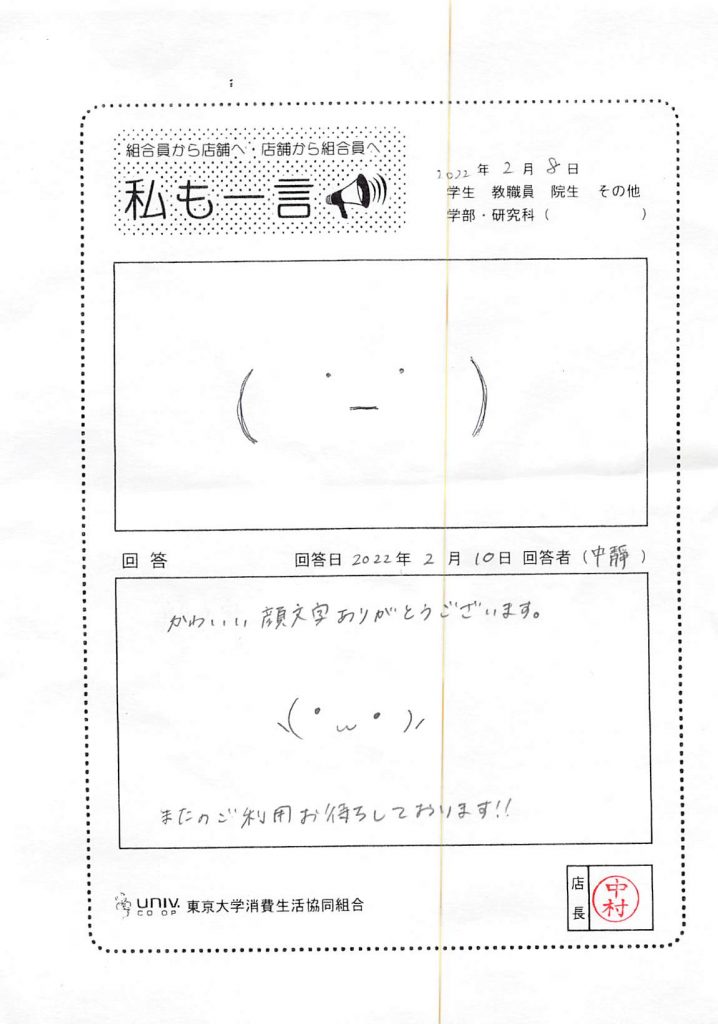 組合員から店舗へ・店舗から組合員へ
私も一言
2022年 2月 8日
学生 教職員 院生 その他
学部・研究科( )
( ・ _ ・ )
回答 回答日 2022年 2月 10日 回答者(中靜)
かわいい顔文字ありがとうございます。
\( ・ ω ・ )/
またのご利用お待ちしております!!
UNIV. CO-OP 東京大学消費生活協同組合
店長 中村